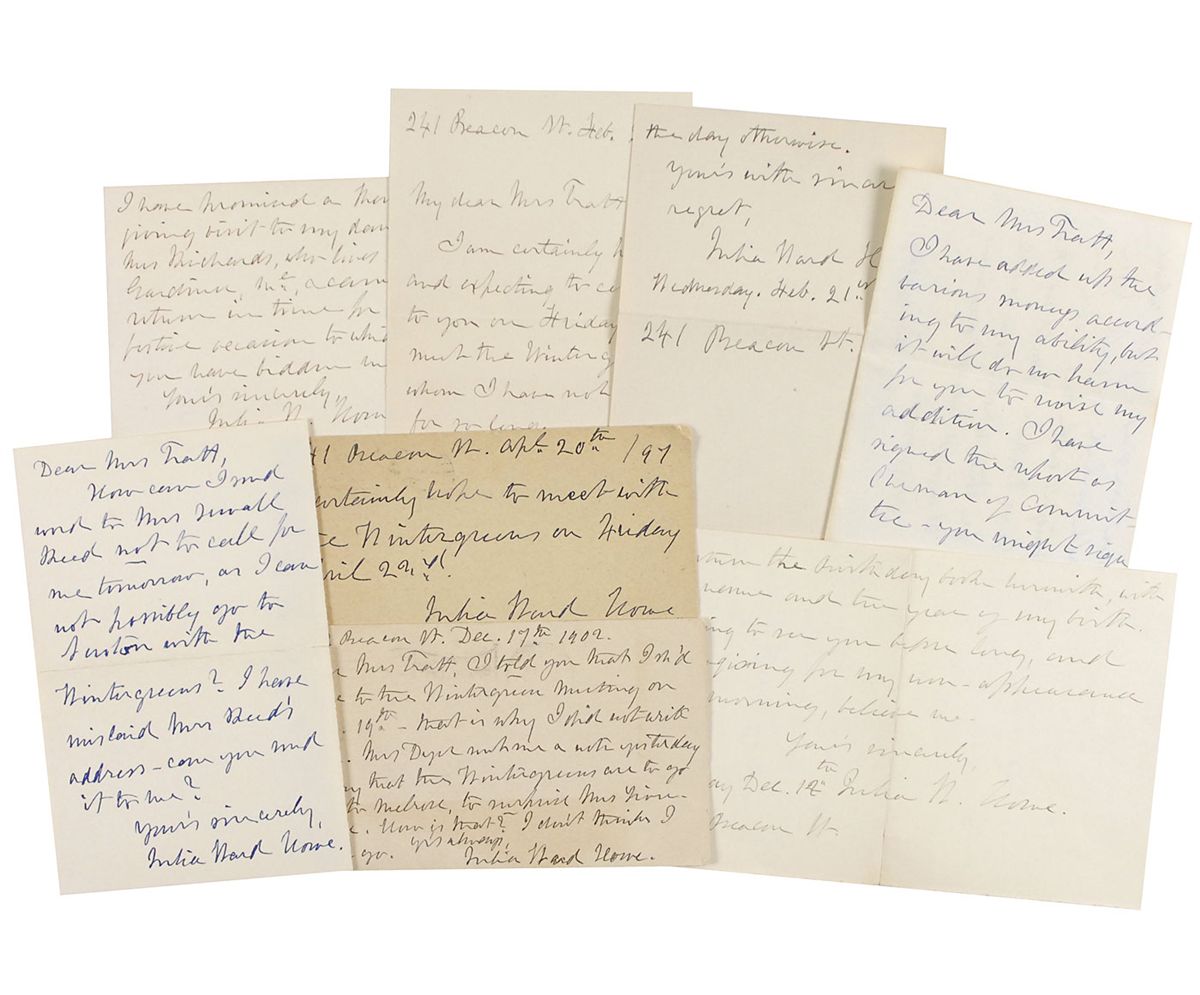 I have promised a
giving visit to my
Mrs Richards, who lives
Gardiner, Me,
return in time for
festive occasion to
you have bidden
Your's sincerely
Julia W. Howe
241 Beacon St. Feb.
My dear Mrs Tratt
I am certainly
and expecting to
to you on Friday
meet the
whom I have not
for so long
the day otherwise.
your's with
regret,
Julia Ward
Wednesday. Feb. 21st
241 Beacon St.
Dear Mrs Tratt,
I have added up the
various moneys accord-
ing to my ability, but
it will do no harm
for you to revise my
addition. I have
signed the report as
Chairman of Commit-
tee - you might sign
Dear Mrs Tratt,
How can I send
word to Mrs Sewall
Reed not to call for
me tomorrow, as I can
not possibly go to
Newton with the
Wintergreens? I have
mislaid Mrs Reed's
address - can you send
it to me?
Your's sincerely,
Julia Ward Howe.
41 Beacon St. Apl. 20th /97
certainly hope to meet with
Wintergreens on Friday
22nd
Julia Ward Howe
Beacon St. Dec. 17th 1902.
Mrs Tratt, I told you that I sh'd
to the Wintergreen meeting on
19th - that is why I did not write
Mrs sent me a note yesterday
that the Wintergreens are to go
to Melrose, to surprise Mrs
How is that? I don't think I
go. yrs always,
Julia Ward Howe.
the birthday book herewith, with
name and the year of my birth.
to see you before long, and
for my non-appearance
morning, believe me
Your's sincerely,
Dec. 12th Julia W. Howe.
Beacon St.